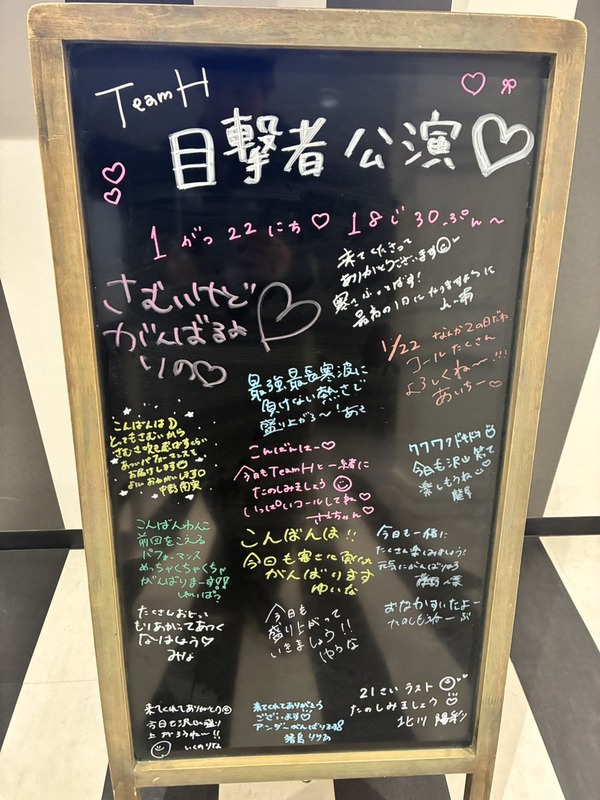 Team H
目撃者公演
1がつ22にち♡18じ30ぷん〜
来てくださって
ありがとうございます
寒さふっとばす!
最高の1日になりますように
さむいけど
がんばるよ
りの♡
1/22 なんかての日だね
コールたくさん
よろしくね〜!!!
あいちー♡
最強最長寒波に
負けない熱さで
盛り上がろ〜!
こんばんは
とってもさむいから
さむさ吹き飛ばすぐらい
あついパフォーマンスを
お届けします
よろしくおねがいします
こんばんはー♡
今日もTeamHと一緒に
たのしみましょう
いっぱいコールしてね♡
さえちゃん♡
ワクワクドキドキ
今日も沢山笑て
楽しもうね
こんばんわんこ
前回をこえる
パフォーマンス
めっちゃくちゃくちゃ
がんばりまーす!!
こんばんは!!
今日も寒さに負けず
がんばります
ゆいな
今日も一緒に
たくさん楽しみましょう!
元気にがんばりゆう
たくさんおどって
もりあがってあつく
なはしょう♡
みな
今日も
盛り上がって
いきましょう!!
ゆらな
おなかすいたよー
たのしも〜
来てくれてありがとう
今日も沢山盛り
上がろうね〜!!
いくのりな
来てくれてありがとう
ございます♡
アンダーがんばります
猪島
21さいラスト
たのしみましょう
北川 陽彩